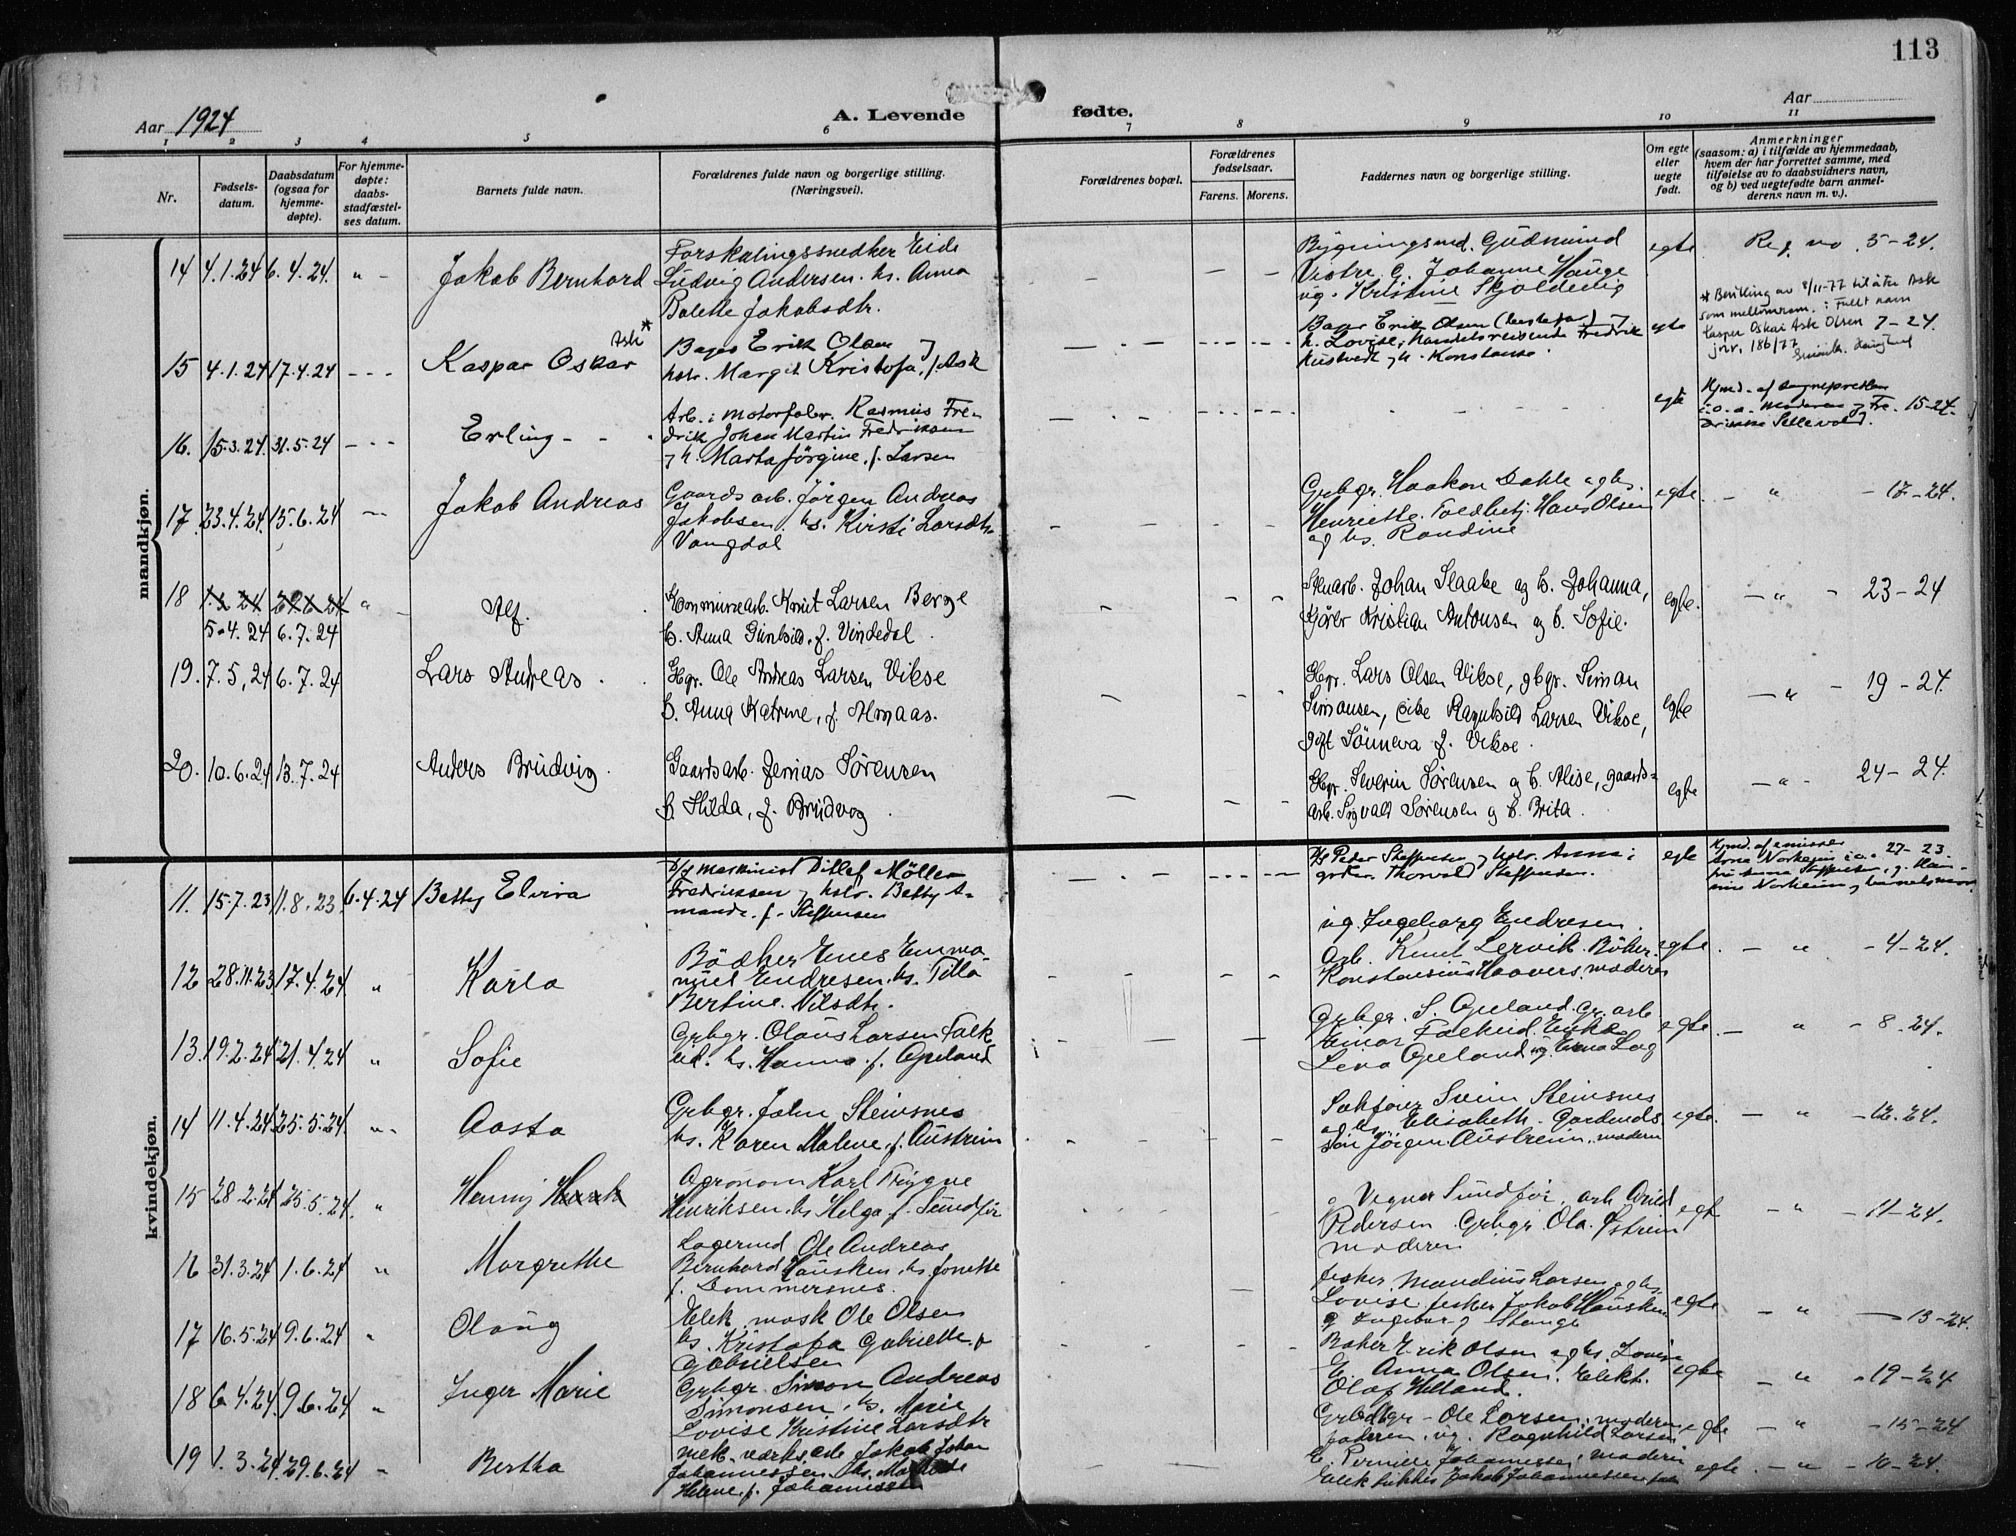 113
Aar 1924
A. Levende fødte.
Aar
1 2 3 4 5 6 7 8 9 10 11
Nr.
Fødsels-
datum.
Daabsdatum
(ogsaa for
hjemme-
døpte).
For hjemme-
døpte:
daabs-
stadfæstel-
ses datum.
Barnets fulde navn.
Forældrenes fulde navn og borgerlige stilling.
(Næringsvei).
Forældrenes bopæl.
Forældrenes
fødselsaar.
Farens. Morens.
Faddernes navn og borgerlige stilling.
Om egte
eller
uegte
født.
Anmerkninger
(saasom: a) i tilfælde av hjemmedaab,
hvem der har forrettet samme, med
tilføielse av to daabsvidners navn,
og b) ved uegtefødte barn anmel-
derens navn m. v.).
mandkjøn.
14 4.1.24 6.4.24. " -
Jakob Bernhard
Forskalingssnedker Eide
Ludvig Andersen. hs. Anna
Bolette Jakobsdtr.
Bygningsmd. Gudmund
Vistre. G. Johanne Hauge
ug. Kristine Skjoldevig
egte
Reg. no 5-24.
15 4.1.24 17.4.24 - - -
Kaspar Oskar Ask*
Bager Erik Olsen
hstr. Margit Kristofa, f. Ask
Bager Erik Olsen (bestefar) og
h. Lovise, handelsreisende Fredrik
og h. Konstanse.
egte
* Bevilling av 8/11-77 til å ta Ask
som mellomnavn: Fullt navn
Casper Oskar Ask Olsen 7-24.
jnr. 186/77
16. 15.3.24. 31.5.24 - - -
Erling - - .
Arb. i motorfabr. Rasmus Fre-
drik Johan Martin Fredriksen
og h. Marta Jørgine, f. Larsen
egte
Hjmd. af sogneprestens
i.o.a. Moderen og Fre- 15-24.
drikke Sellevold.
17. 23.4.24. 15.6.24 - -
Jakob Andreas
Gaards arb. Jørgen Andreas
Jakobsen, hs. Kirsti Larsdtr
Vangdal
Grbgr. Haakon Dahle og hs.
Henriette. Hans Olsen
og hs. Randine
egte. - " - 17-24.
18 5.4.24 6.7.24 " -
Alf.
Kommunearb. Knut Larsen Berge
h. Anna Gunhild, f. Vindedal.
Stenarb. Johan Slaake og h. Johanna,
Kjører Kristian Antonsen og h. Sofie.
egte. - " - 23-24
19. 7.5.24 6.7.24
Lars Andreas .
Gbgr. Ole Andreas Larsen Vikse
h. Anna Katrine, f. Amaas.
Gbgr. Lars Olsen Vikse, gbgr. Simon
Simonsen, pike Ragnhild Larsen Vikse,
gift Sønneva f. Vikse.
egte - " - 19-24.
20. 10.6.24 13.7.24
Anders Brudvig.
Gaardsarb. Jenias Sørensen
h. Hilda, f. Brudvog
Gbgr. Severin Sørensen og h. Alise, gaards-
arb. Sigvald Sørensen og h. Brita.
egte - " - 24-24.
kvindekjøn.
11. 15.7.23 11.8.23 6.4.24
Betty Elvira
D/s maskinist Ditlef Möller
Fredriksen og hstr. Betty A-
manda, f. Steffensen
Peder Steffensen og hstr. Anna;
Thorvald Steffensen.
egte
Hjmd. af emissær
Arne Norheim i.o. 27-23
12 28.11.23 17.4.24 "
Karla
Bödker Enes Emma-
nuel Endresen. hs. Tilla
Bertine Nilsdtr.
ug. Ingeborg Endresen.
Arb. Knut Lervik. Böker.
Konstansius Haavers, moderen
egte. - " - 4-24.
13. 19.2.24 21.4.24 "
Sofie
Grbgr. Olaus Larsen Falk
eid. hs. Hanna f. Opeland
Grbgr. S. Opeland. gr. arb
Einar Falkeid. Enke
Lina Opeland ug. Erna Lag
egte. - " - 8.24.
14 11.4.24 25.5.24. " -
Aasta
Grbgr. John Steinsnes
hs. Karen Malene f. Austreim
Sakfører Svein Steinsnes
og hs. Elisabeth. Gardmds.
søn Jørgen Austreim, moderen
egte. - " - 12.24.
15 28.2.24 25.5.24. "
Henny
Agronom Karl Trygve
Henriksen. hs Helga f. Sundför
g Vegner Sundför, arb. Arvid
Pedersen. Grbgr. Ola. Østrem
moderen
egte - " - 11-24.
16 31.3.24 1.6.24 "
Margrethe
Lagermd Ole Andreas
Bernhard Hausken, hs. Jonette
f. Dommersnes.
fisker Mandius Larsen og hs.
Lovise, fisker Jakob Hausken
g Ingebor g Stange
egte - " - 13-24.
17 16.5.24 9.6.24 "
Olaug
Elek. mask Ole Olsen
hs. Kristofa Gabrielle f
Gabrielsen
Baker Erik Olsen og hs. Lovise
E. Anna Olsen. Elekt.
Olaf Helland.
egte - " - 19-24
18 6.4.24. 9.6.24 "
Inger Marie
Grbgr. Simon Andreas
Simonsen, hs. Marie
Lovise Kristine Larsdtr
Grbdbgr - Ole Larsen, moderen
faderen, ug. Ragnhild Larsen
egte - " - 15-24
19 1.3.24. 29.6.24 "
Bertha
mek. værks. arb Jakob Johan
Johannessen hs. Mathilde
Helene, f. Johannessen
E. Pernille Johannessen, moderen
Elektriker Jakob Johannessen, fad.
egte. - " - 10-24.